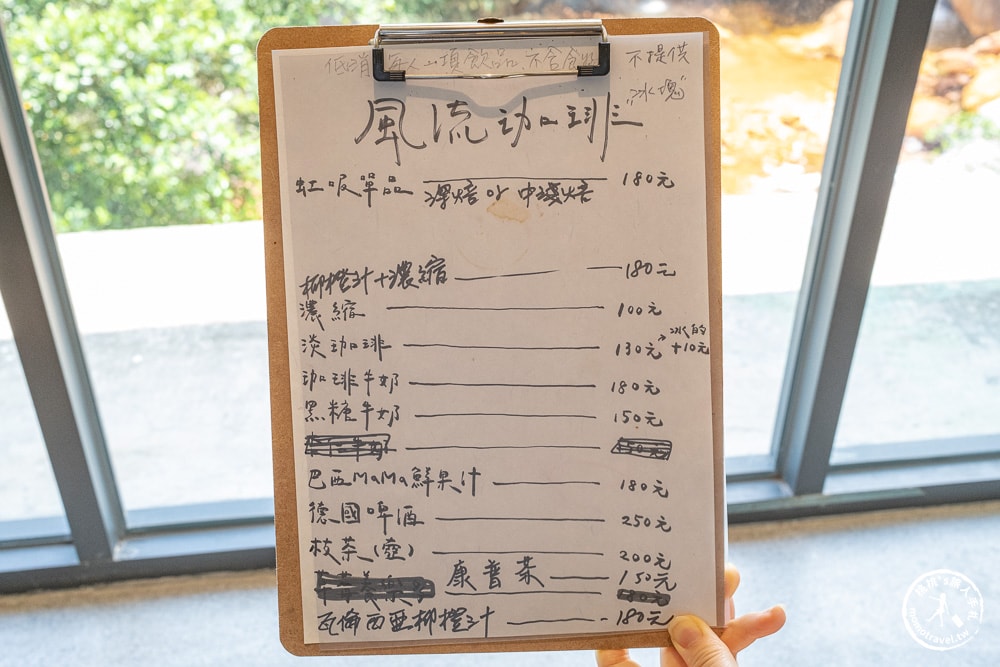 低消 每人一項飲品 亦含食物 不提供
"冰塊"
風流珈琲
虹吸單品 180元
深焙 or 中淺焙
柳橙汁+濃縮 180元
濃縮 100元
淡珈琲 130元 冰的
+10元
珈琲牛奶 180元
黑糖牛奶 150元
巴西MaMa鮮果汁 180元
德國啤酒 250元
枝茶(壺) 200元
康普茶 150元
瓦倫西亞柳橙汁 180元
momotravel.tw